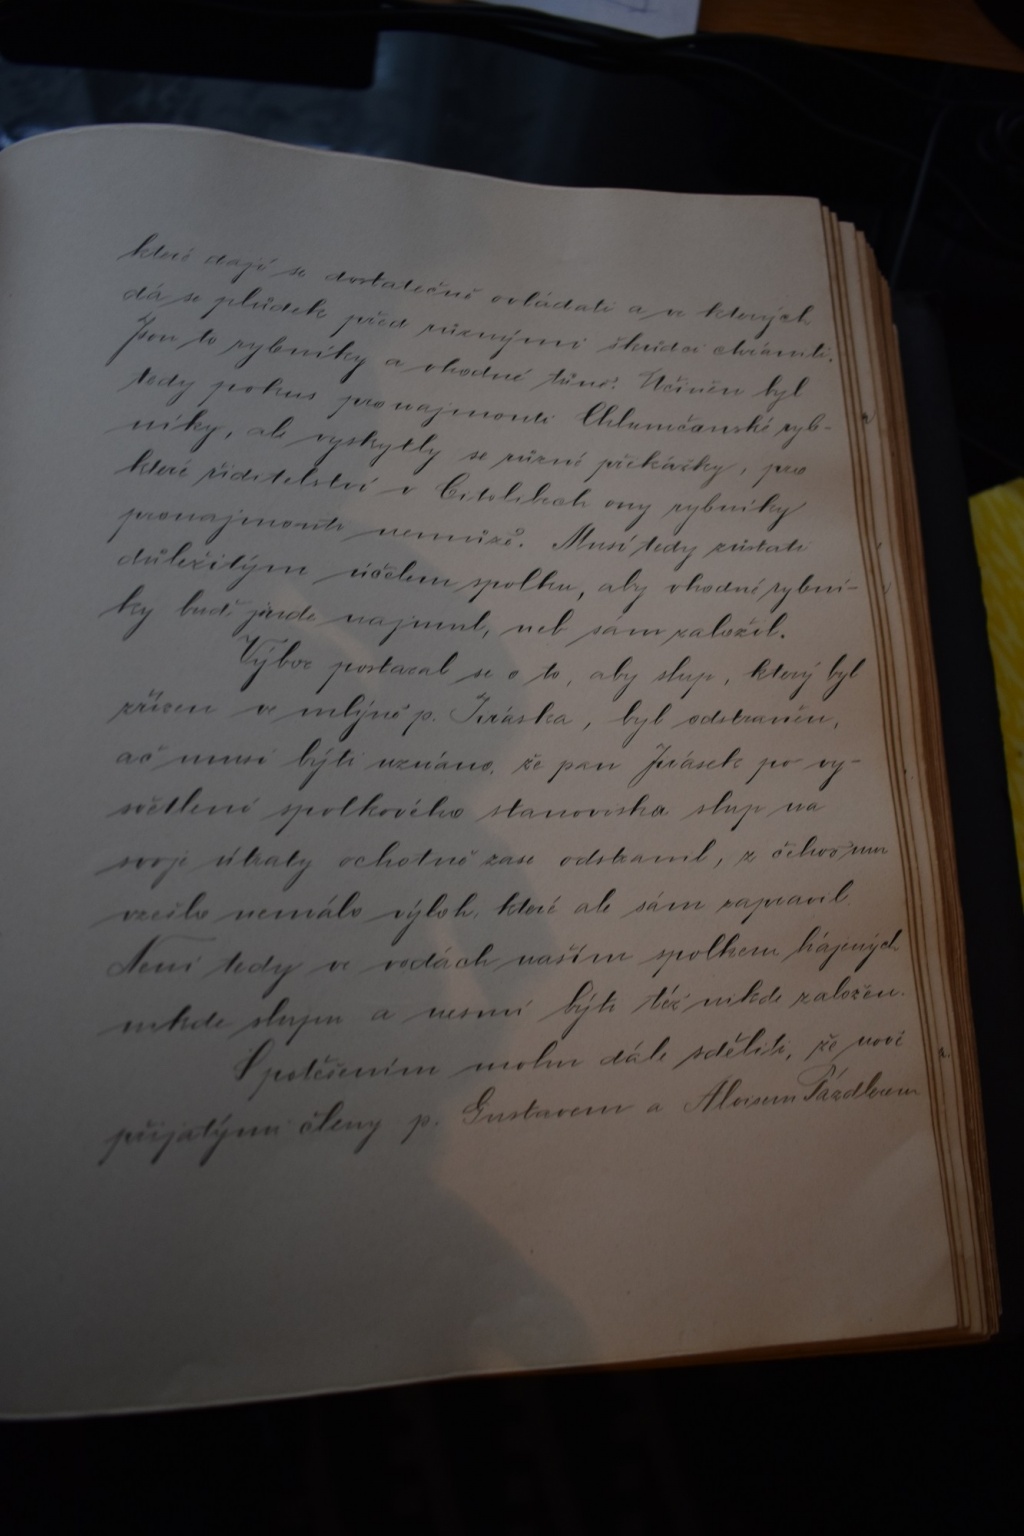 které dají se dostatečně ovládati a ve kterých
dá se plůdek před různými škůdci chrániti.
Jsou to rybníky a vhodné tůně. Učiněn byl
tedy pokus pronajmouti Chlumčanské ryb-
níky, ale vyskytly se různé překážky, pro
které ředitelství v Citolibech ony rybníky
pronajmouti nemůže. Musí tedy zůstati
důležitým účelem spolku, aby vhodné rybní-
ky buď jinde najmul, neb sám založil.
Výbor postaral se o to, aby slup, který byl
zřízen ve mlýně p. Jiráska, byl odstraněn,
ač musí býti uznáno, že pan Jirásek po vy-
světlení spolkového stanoviska slup na
svoje útraty ochotně zase odstranil, z čehož mu
vzešlo nemálo výloh, které ale sám zapravil.
Není tedy ve vodách naším spolkem hájených
nikde slupu a nesmí býti též nikde založen.
S potěšením mohu dále sděliti, že nově
přijatými členy p. Gustavem a Aloisem Pázdlerem